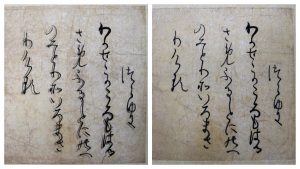 つらゆき
わかせこかころもはる
さめふることにのへ
のみとりそいろまさ
りける
つらゆき
わかせこかころもはる
さめふることにのへ
のみとりそいろまさ
りける